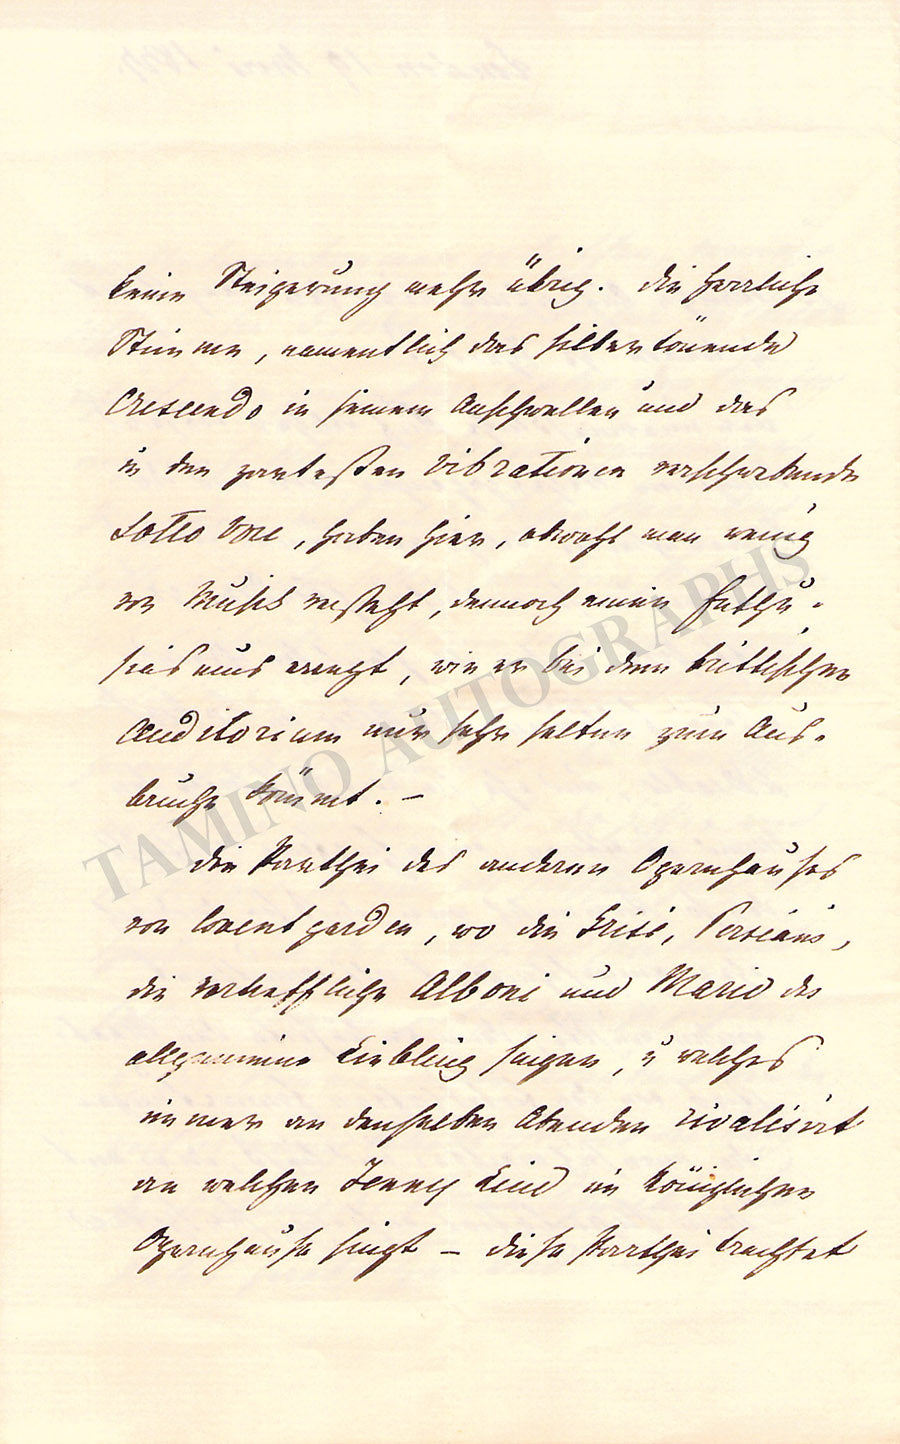 keine Steigerung mehr übrig. Die herrliche
Stimme, namentlich das silbertönende
Crescendo in seinem Anschwellen und das
in den zartesten Vibrationen verschwebende
Sotto Voce, haben hier, obwohl man wenig
von Musik versteht, dennoch einen Enthu-
siasmus erregt, wie er bei dem brittischen
Auditorium nur sehr selten zum Aus-
bruche kömmt. –
Die Parthei des anderen Opernhauses
von Coventgarden, wo die Grisi, Persiani,
die vortreffliche Alboni und Mario der
allgemeine Liebling singen, u welches
immer an denselben Abenden rivalisirt
an welchen Jenny Lind im Königlichen
Opernhause singt – diese Parthei trachtet
TAMINO AUTOGRAPHS